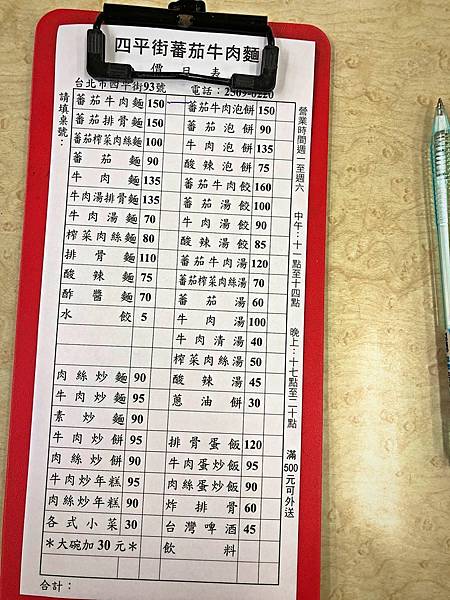 四平街蕃茄牛肉麵
價目表
台北市四平街93號 電話：2509-6220
請填桌號：
蕃茄牛肉麵 150
蕃茄排骨麵 150
蕃茄榨菜肉絲麵 100
蕃茄麵 90
牛肉麵 135
牛肉湯排骨麵 135
牛肉湯麵 70
榨菜肉絲麵 80
排骨麵 110
酸辣麵 75
酢醬麵 70
水餃 5
肉絲炒麵 90
牛肉炒麵 95
素炒麵 90
牛肉炒餅 95
肉絲炒餅 90
牛肉炒年糕 95
肉絲炒年糕 90
各式小菜 30
＊大碗加30元＊
合計：
蕃茄牛肉泡餅 150
蕃茄泡餅 90
牛肉泡餅 135
酸辣泡餅 75
蕃茄牛肉餃 160
蕃茄湯餃 100
牛肉湯餃 90
酸辣湯餃 85
蕃茄牛肉湯 120
蕃茄榨菜肉絲湯 70
蕃茄湯 60
牛肉湯 100
牛肉清湯 40
榨菜肉絲湯 50
酸辣湯 45
蔥油餅 30
排骨蛋飯 120
牛肉蛋炒飯 95
肉絲蛋炒飯 90
炸排骨 60
台灣啤酒 45
飲料
營業時間週一至週六 中午：十一點至十四點 晚上：十七點至二十點 滿500元可外送